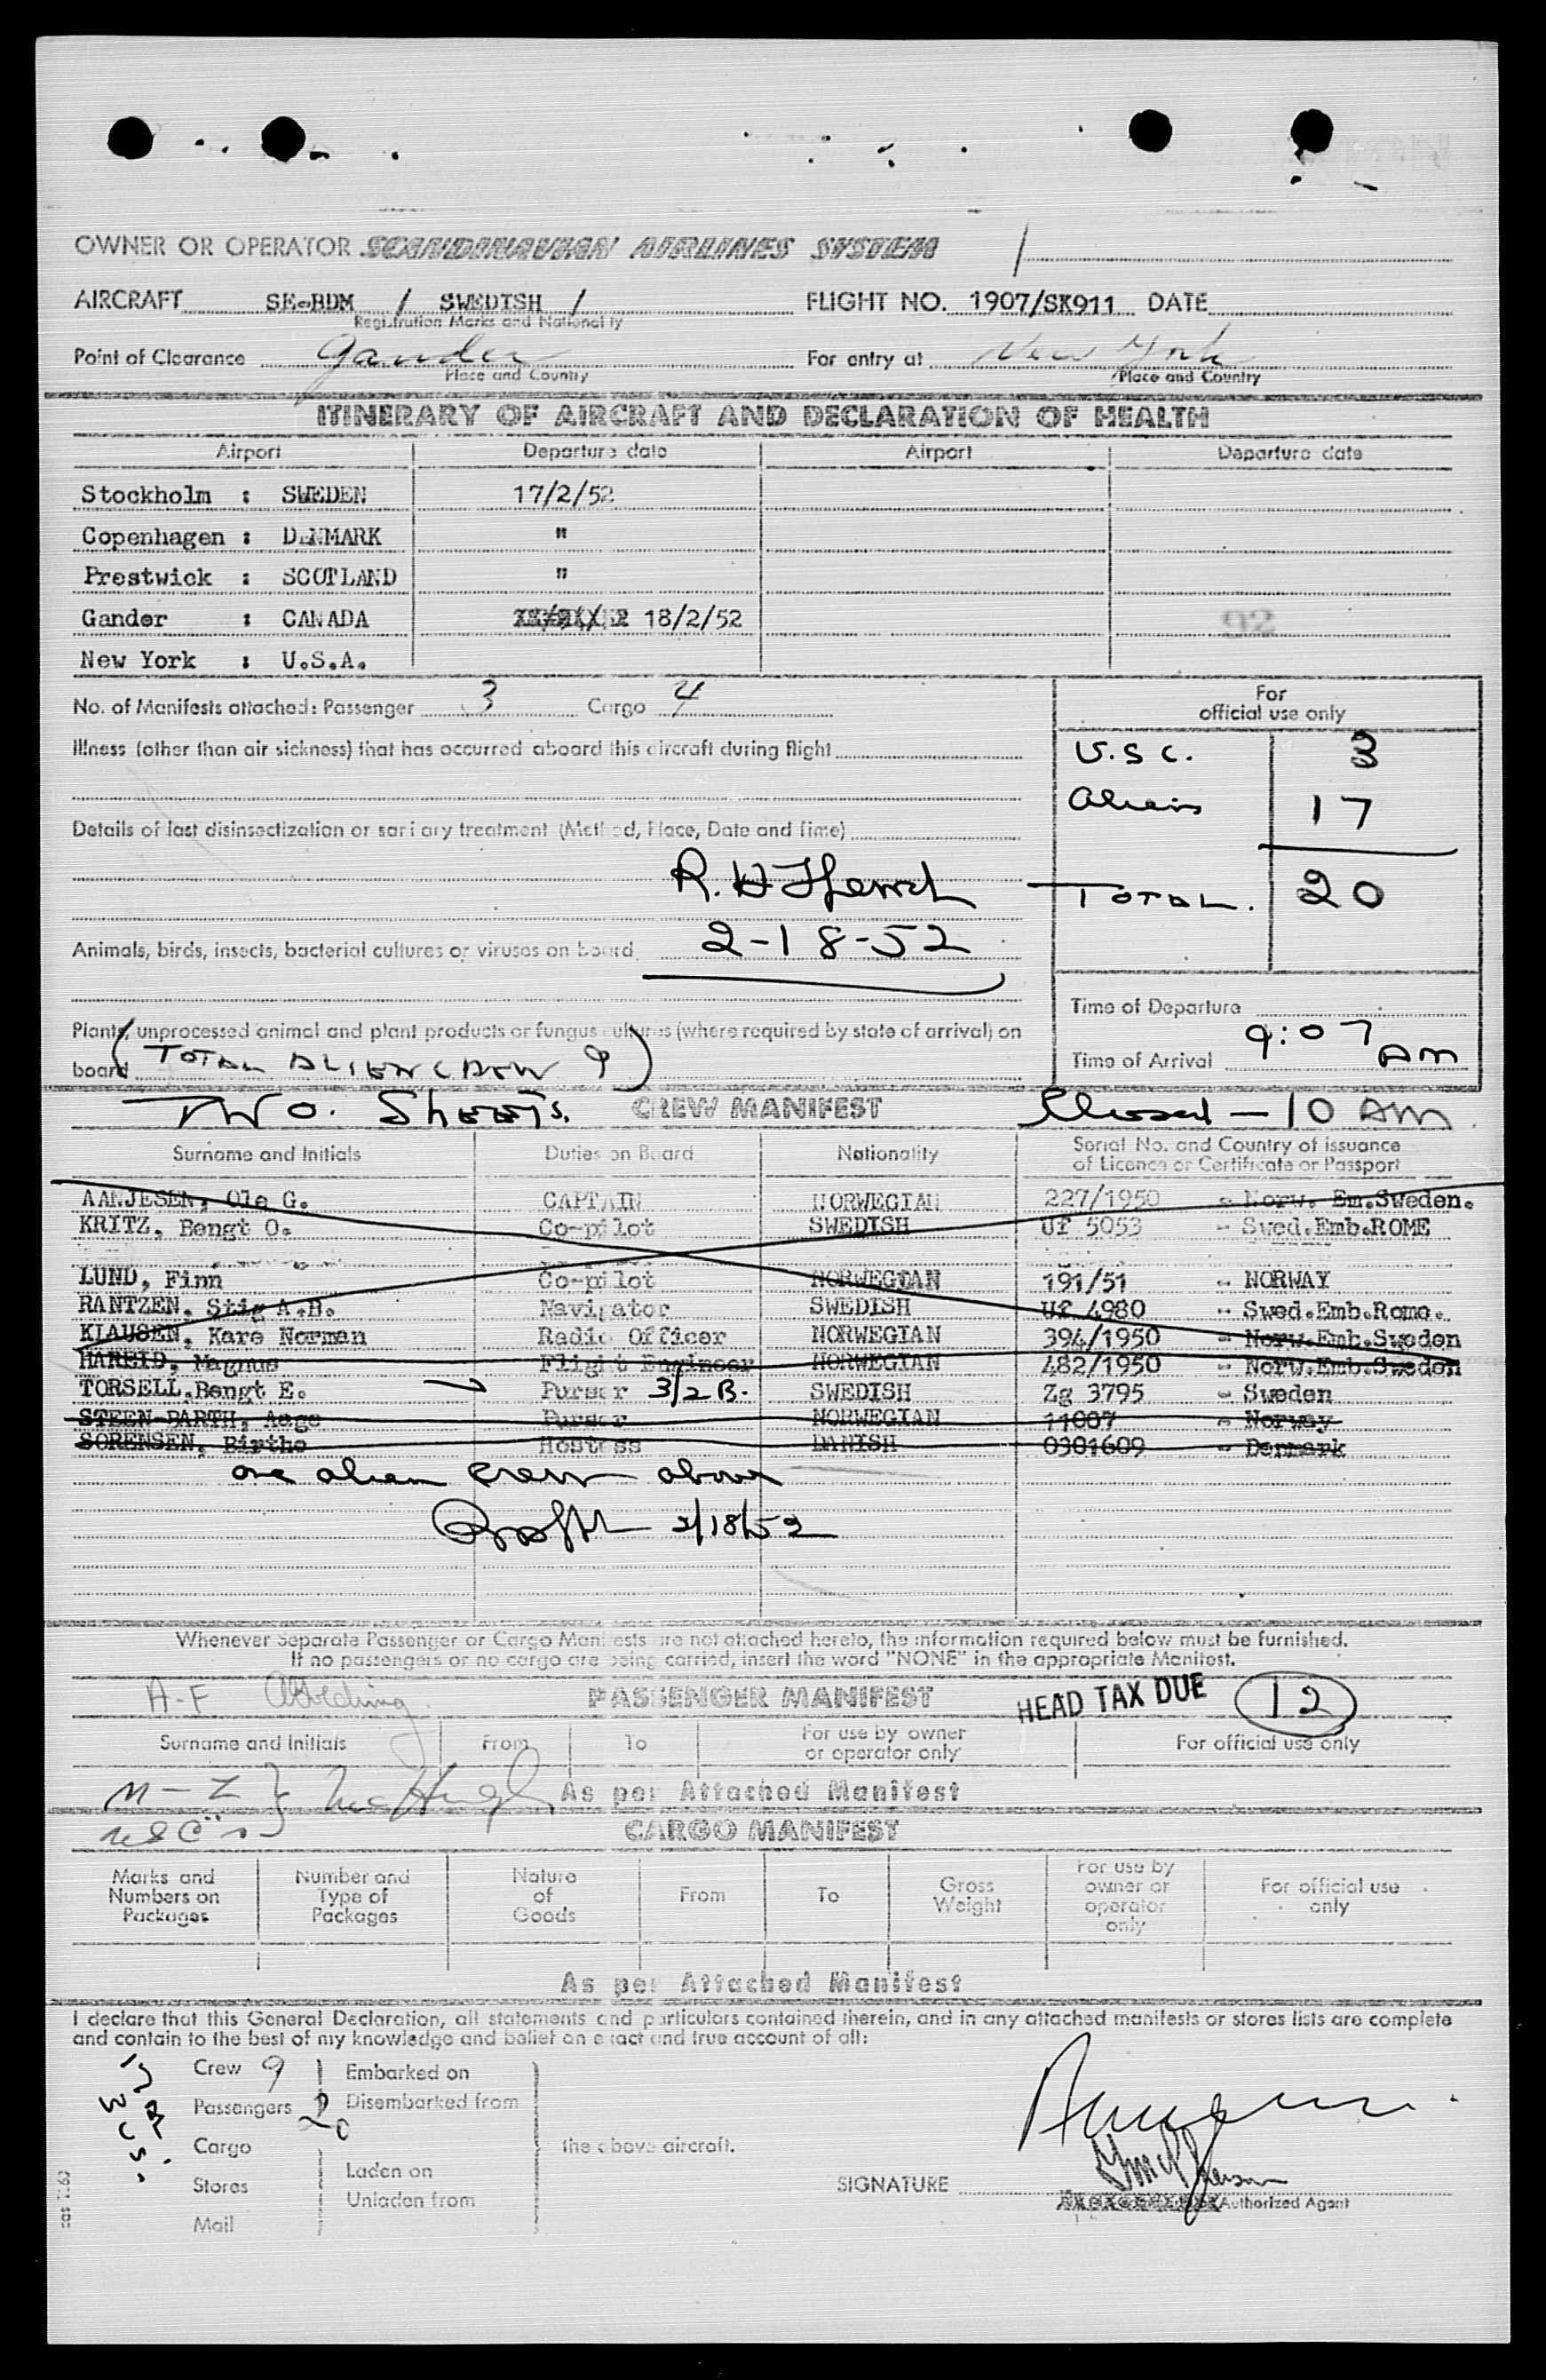 OWNER OR OPERATOR SCANDINAVIAN AIRLINES SYSTEM /
AIRCRAFT SE-BDM / SWEDISH / FLIGHT NO. 1907/SK911 DATE
Registration Marks and Nationality
Point of Clearance Gander For entry at New York
Place and Country Place and Country
ITINERARY OF AIRCRAFT AND DECLARATION OF HEALTH
Airport Departure date Airport Departure date
Stockholm : SWEDEN 17/2/52
Copenhagen : DENMARK "
Prestwick : SCOTLAND "
Gander : CANADA 18/2/52
92
New York : U.S.A.
No. of Manifests attached: Passenger 3 Cargo 4
For
official use only
Illness (other than air sickness) that has occurred aboard this aircraft during flight
U.S C. 3
Aliens 17
Details of last disinsectization or sanitary treatment (Method, Place, Date and Time)
R. H
TOTAL. 20
2-18-52
Animals, birds, insects, bacterial cultures or viruses on board
Time of Departure
Plants, unprocessed animal and plant products or fungus cultures (where required by state of arrival) on
board (TOTAL ALIEN CREW 9)
Time of Arrival 9:07 AM
TWO. Sheets. CREW MANIFEST Closed - 10 AM
Surname and Initials Duties on Board Nationality Serial No. and Country of issuance
of Licence or Certificate or Passport
AANJESEN, Ole G. CAPTAIN NORWEGIAN 227/1950 - Norw. Em.Sweden.
KRITZ, Bengt O. Co-pilot SWEDISH Uf 5053 - Swed.Emb.ROME
LUND, Finn Co-pilot NORWEGIAN 191/51 - NORWAY
RANTZEN, Stig A.H. Navigator SWEDISH Uf 4980 - Swed.Emb.Rome.
KLAUSEN, Kare Norman Radio Officer NORWEGIAN 394/1950 - Norw.Emb.Sweden
HAREID, Magnus Flight Engineer NORWEGIAN 482/1950 - Norw.Emb.Sweden
TORSELL, Bengt E. Purser 3/2 B. SWEDISH Zg 3795 - Sweden
STEEN-BARTH, Aage Purser NORWEGIAN 11007 - Norway
SORENSEN, Birthe Hostess DANISH 0301609 - Denmark
one alien crew above
2/18/52
Whenever Separate Passenger or Cargo Manifests are not attached hereto, the information required below must be furnished.
If no passengers or no cargo are being carried, insert the word "NONE" in the appropriate Manifest.
A-F
PASSENGER MANIFEST HEAD TAX DUE 12
Surname and Initials From To For use by owner
or operator only For official use only
M - Z } McHugh
As per Attached Manifest
USC's
CARGO MANIFEST
Marks and
Numbers on
Packages
Number and
Type of
Packages
Nature
of
Goods
From To Gross
Weight
For use by
owner or
operator
only
For official use
only
As per Attached Manifest
I declare that this General Declaration, all statements and particulars contained therein, and in any attached manifests or stores lists are complete
and contain to the best of my knowledge and belief an exact and true account of all:
Crew 9 Embarked on
Passengers 20 Disembarked from
Cargo the above aircraft.
Stores Laden on
Unladen from
Mail
SIGNATURE
Authorized Agent